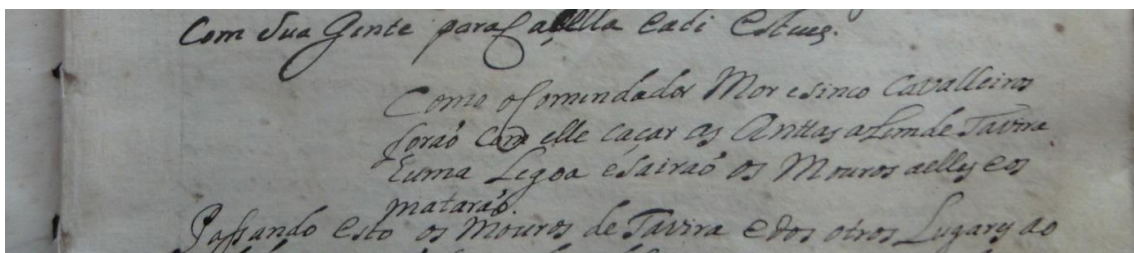 Com sua Gente para Caçella e ali esteue.
Como o Comendador Mor e sinco Cavalleiros
forão com elle caçar as Anttas alem de Tavira
huma Legoa e sairaõ os Mouros a elles e os
matarão.
Passando esto os Mouros de Tavira e dos otros Lugares do